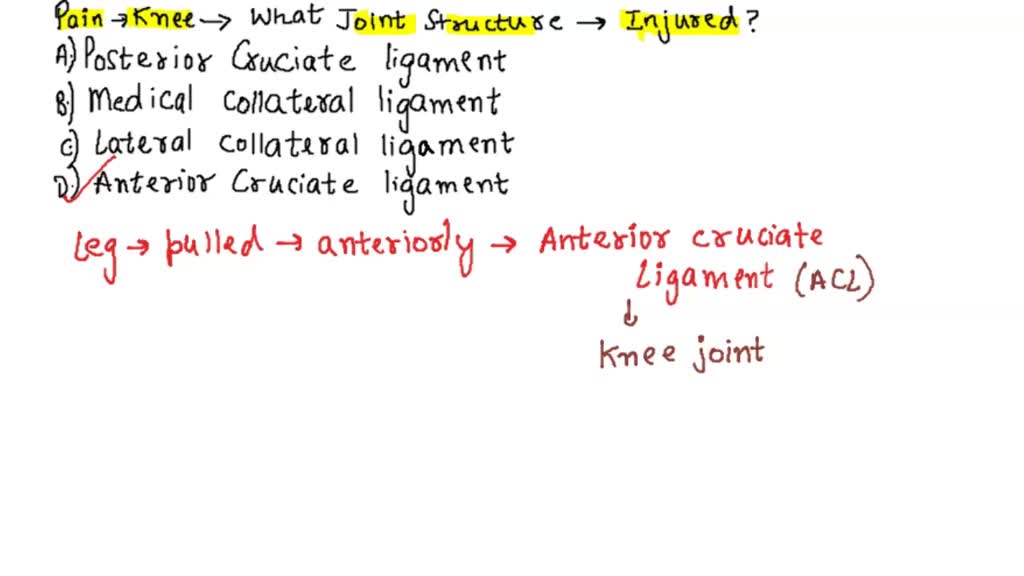 Pain → Knee → What Joint Structure → Injured?
A) Posterior Cruciate ligament
B) Medical collateral ligament
C) Lateral collateral ligament
D) Anterior Cruciate ligament
leg → pulled → anteriorly → Anterior cruciate
ligament (ACL)
↓
Knee joint